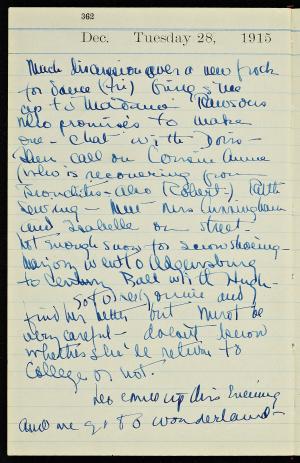 362
Dec. Tuesday 28, 1915
Much discussion over a new frock
for dance (Fri) brings me
up to Madame Rawsons
who promises to make
one - Chat with Doris -
then call on Cousin Annie
(who is recovering from
Tonsilitis - also (Robert-) Ruth
sewing - Meet Mrs Cunningham
and Isabelle on street.
Not enough snow for snowshoeing -
Marjory went to Ogdensburg
to Century Ball with Hugh -
Go to see Jennie and
find her better but must be
very careful - doesn't know
whether she'll return to
College or not.
Leo comes up this evening
and we go to wonderland -